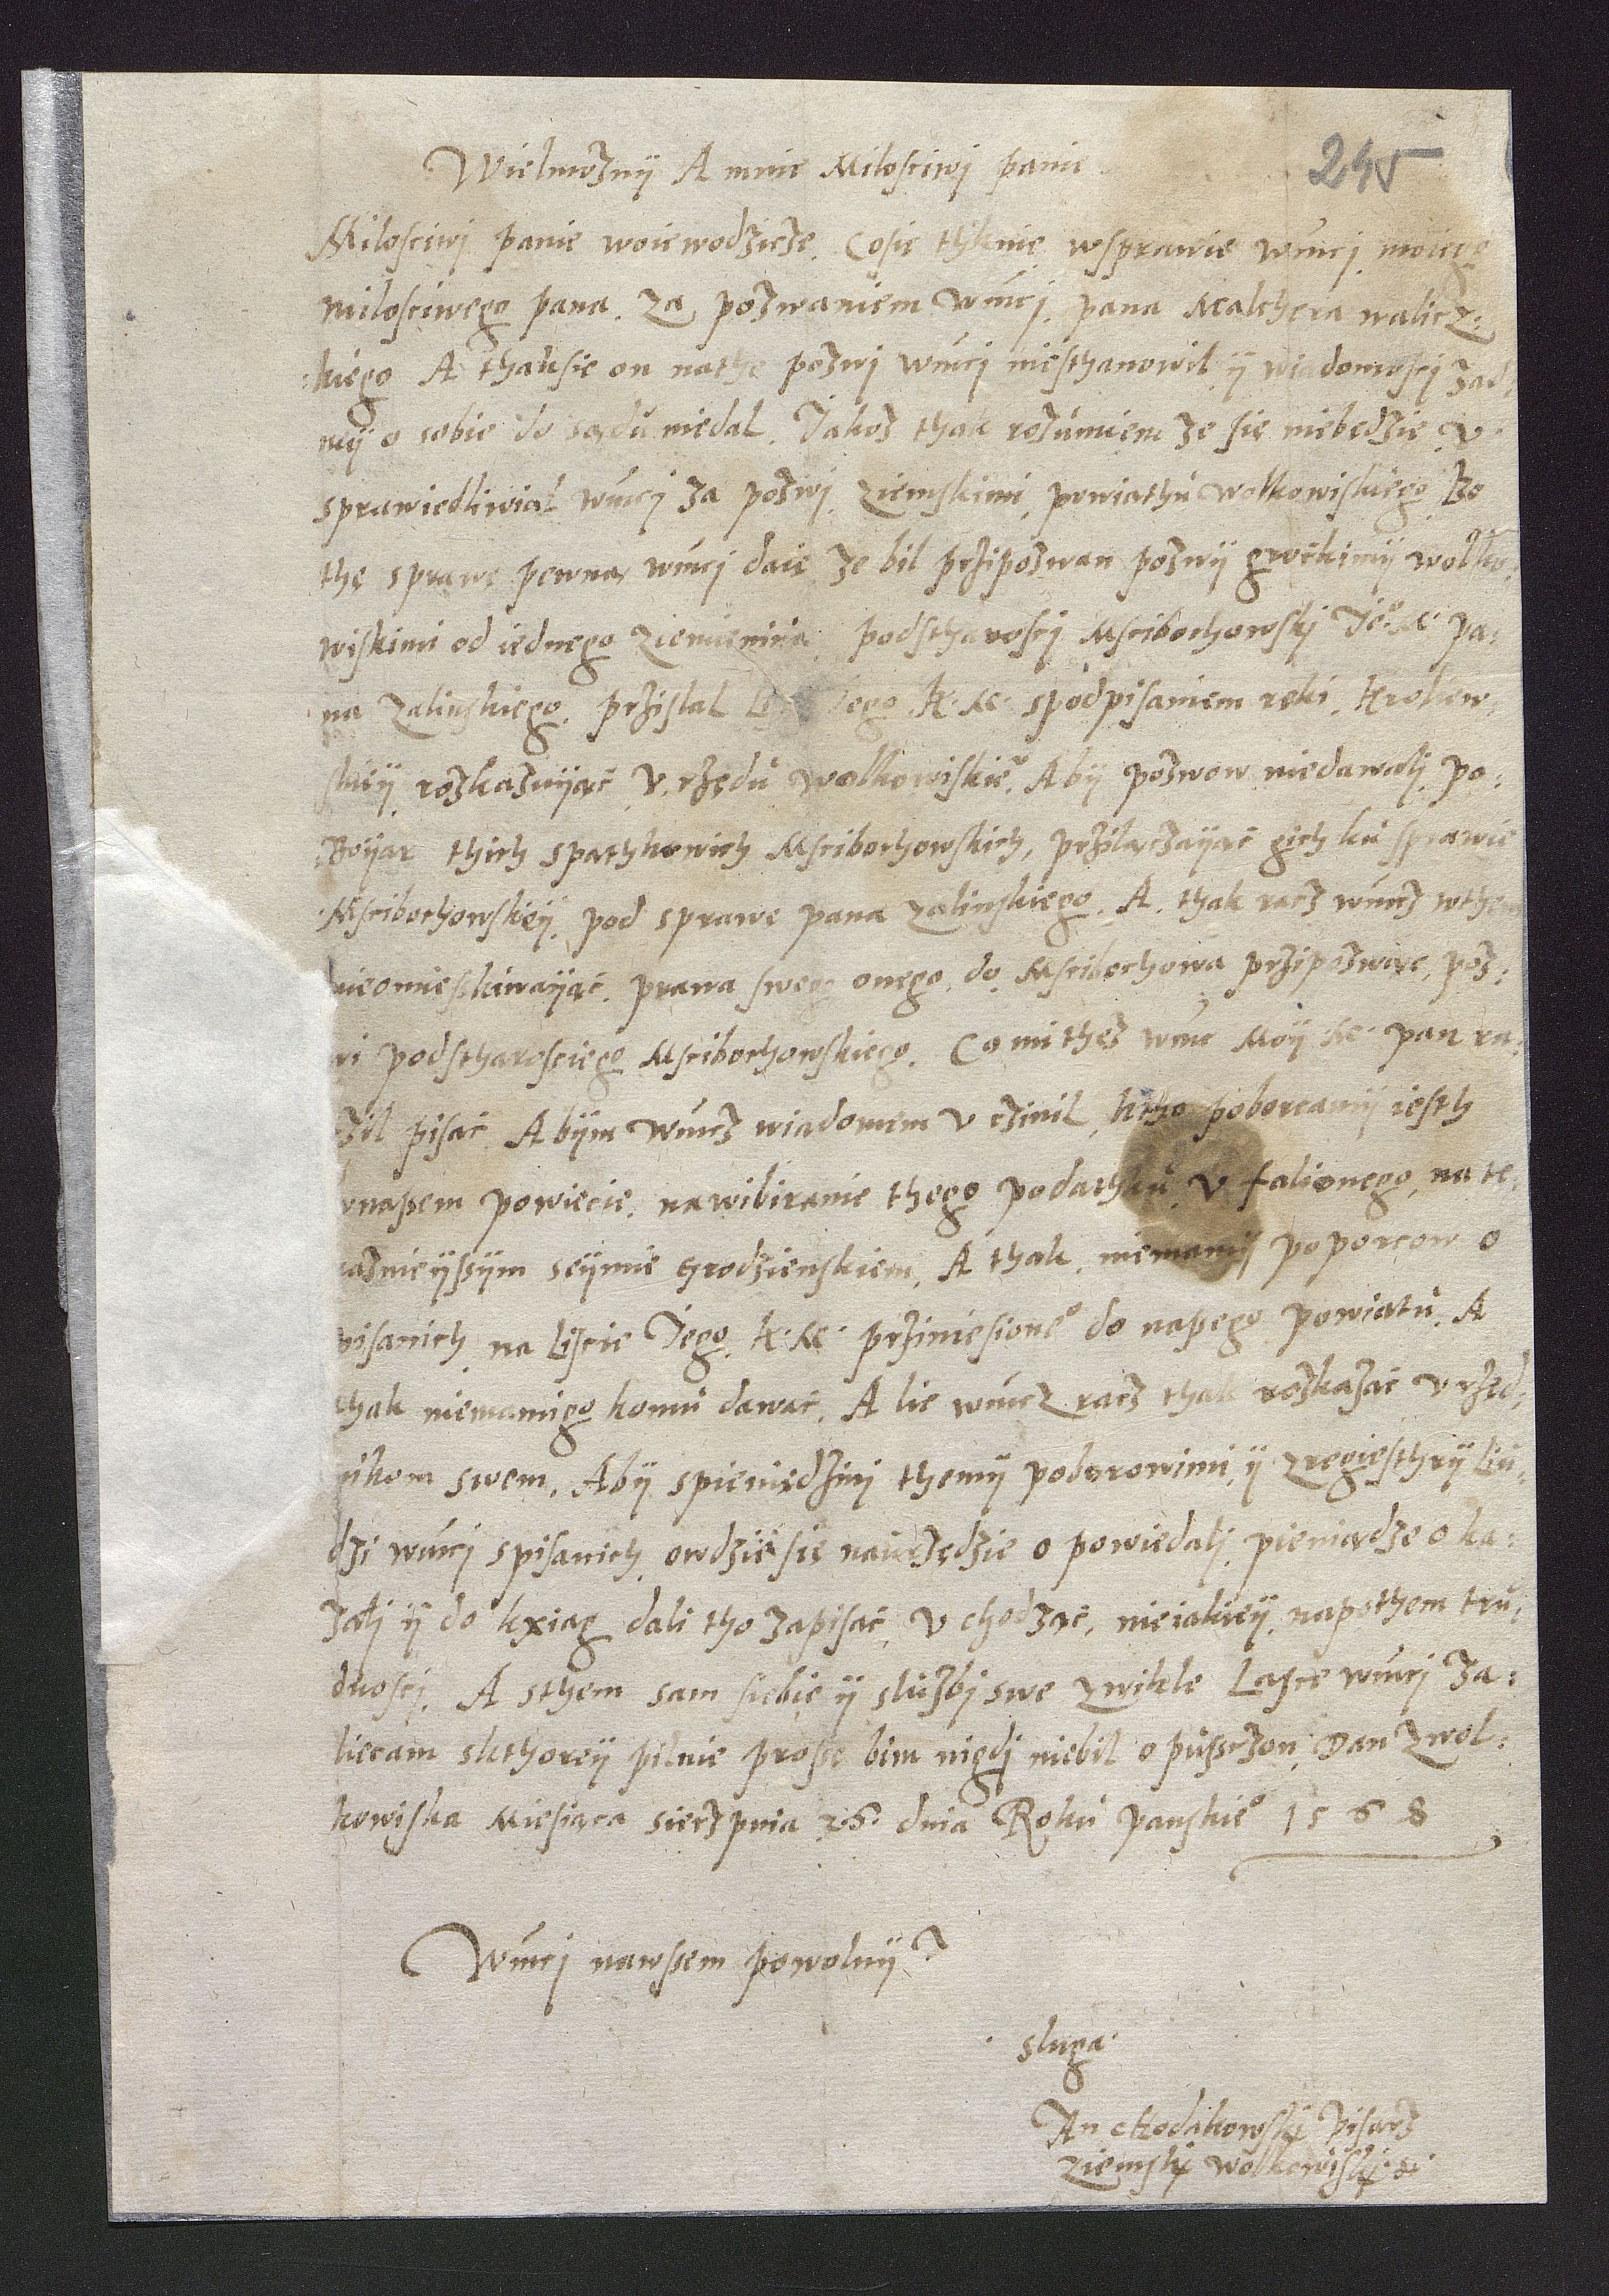 245
Wielmożnÿ A mnie Milosciwj panie
Milosciwj panie woiewodzicze. Cosie thknie wsprawie wmcj moiego
milosciwego pana. za pozwaniem wmcj. pana Malchera walicz:
:kiego A thaksie on nathe pozwj wmcj niesthanowil ÿ wiadomoscj żad
nÿ o sobie do sądu niedal. Jakoż thak rozumiem że się niebędzie v
sprawiedliwiał wmcj za pozwj ziemskimi powiathu wolkowiskiego Bo
thę sprawę pewną wmcj daię że bil prżipozwan pozwÿ groczkimÿ wolko:
wiskimi od iednego ziemienina podstharoscj Mscibochowskj Je° M pa:
na zalinskiego. prżislal iego K. M. spodpisaniem ręki. krolew
skieÿ roskazuÿąć v. rżędu wolkowiskie°. Abÿ pozwow niedawalj po:
Boÿar thich spathkowich Mscibochowskich, prżiląćżaÿąć gich ku sprawie
Mscibochowskieÿ pod sprawę pana zalinskiego. A thak racż wmcż wthem
nieomieszkiwaÿąć. prawa swego onego. do Mscibochowa prżipozwać, poz:
wi podstharosciego Mscibochowskiego. Co mi theż wmc Moÿ M. pan ra:
żil pisać. Abÿm wmcż wiadomem v cżinil, ktho poborcamÿ iesth
wnaszem powiecie. nawibiranie thego podathku v falionego, na te:
raznieÿszÿm seÿmie Grodzienskiem. A thak niemamÿ poporcow o
pisanich na liscie Jego. K. M. prżiniesione° do naszego powiatu. A
thak niemamigo komu dawać. A lie wmcz racż thak roskazać v rżęd:
nikom swem. Abÿ spieniędżmi themÿ poborowimi ÿ zregiesthrÿ liu:
dzi wmcj spisanich owdzie się naurżędzie o powiedalj. pieniądze o ka:
zalj ÿ do kxiąg dali tho zapisać, v chodząć, nieiakieÿ napothem tru:
dnoscj. A sthem sam siebie ÿ służbj swe zwikle Łasce wmcj za:
liecam skthoreÿ pilnie proszę bim nigdj niebil o puszcżon, Dan zwol:
kowiska Miesiąca sierżpnia 26 dnia Roku panskie° 1568
Wmcj nawszem powolnÿ
sluga
An chodakowskj pisarż
ziemskj wolkowiskj